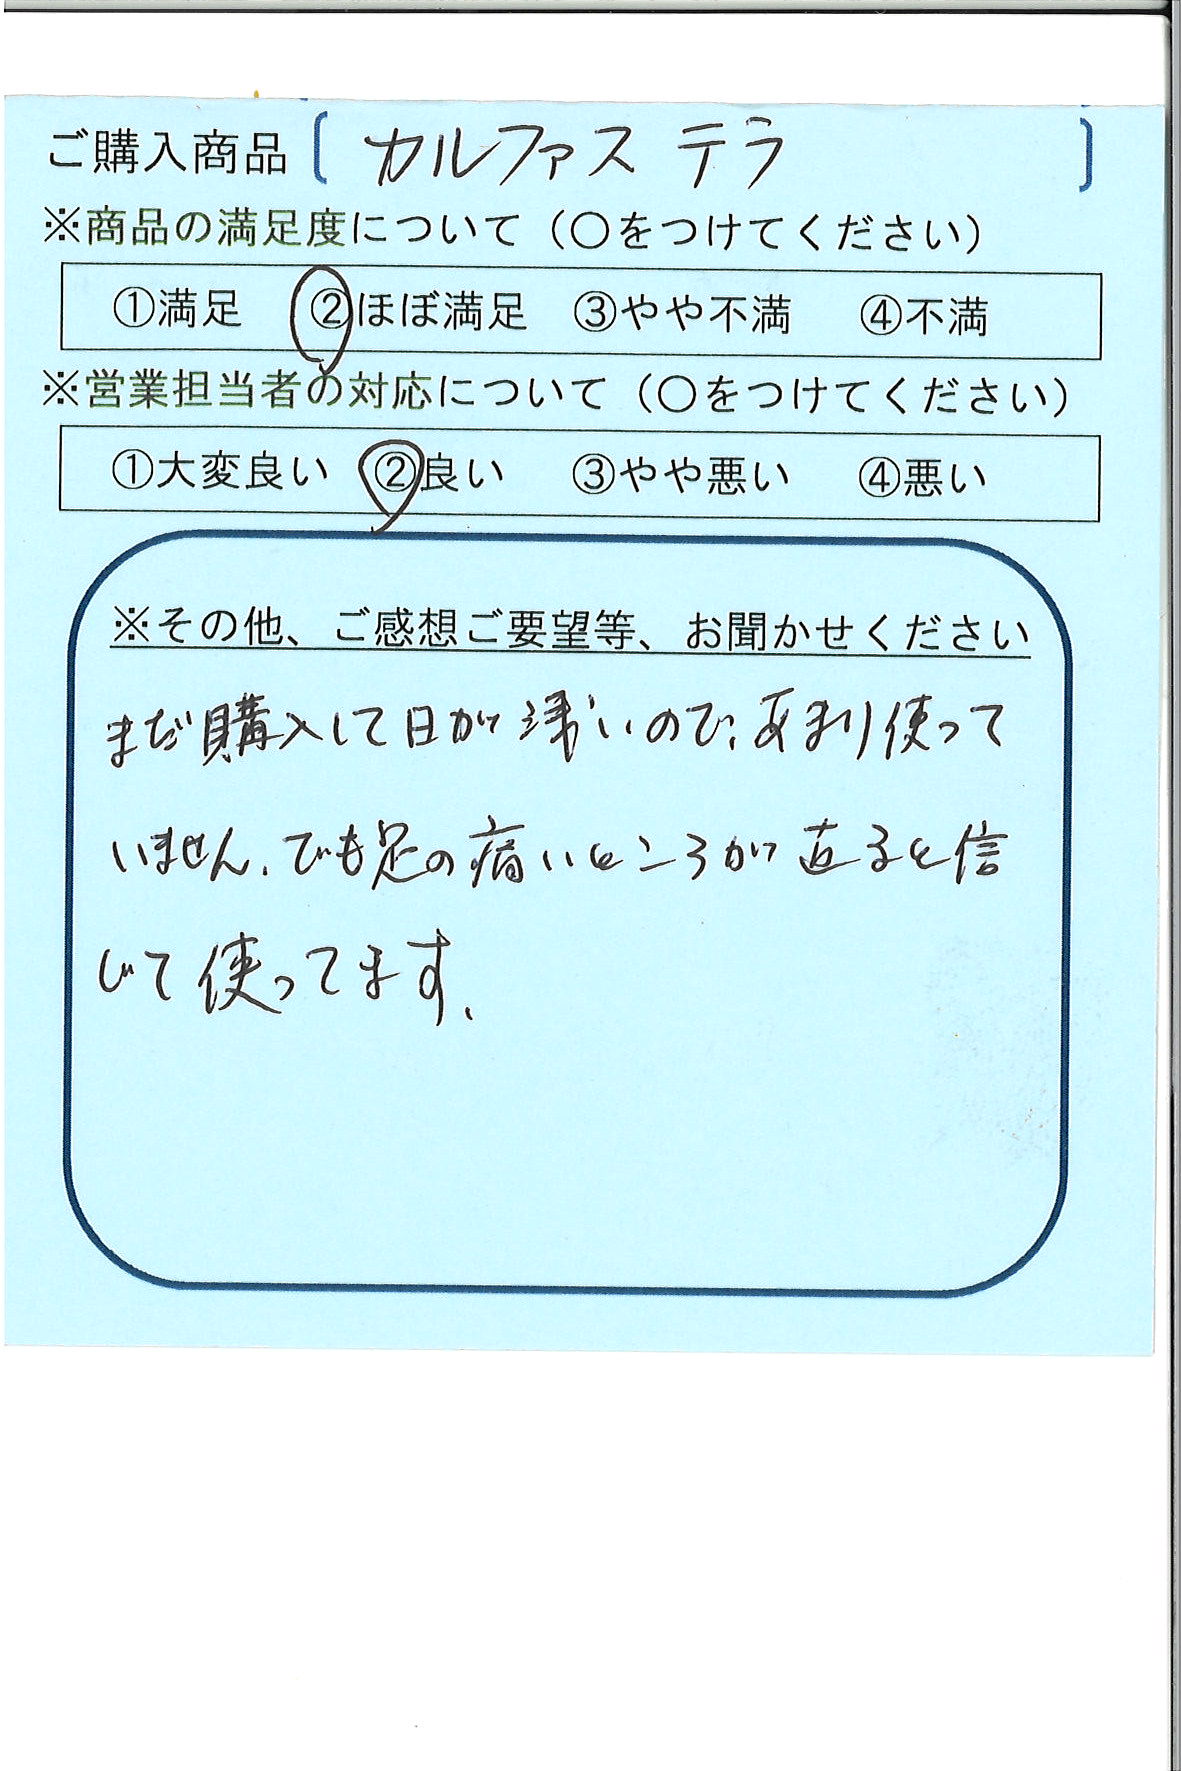 ご購入商品〔カルファス テラ〕
※商品の満足度について（〇をつけてください）
①満足 ②ほぼ満足 ③やや不満 ④不満
※営業担当者の対応について（〇をつけてください）
①大変良い ②良い ③やや悪い ④悪い
※その他、ご感想ご要望等、お聞かせください
まだ購入して日が浅いので、あまり使って
いません、でも足の痛いところが直ると信
じて使ってます、